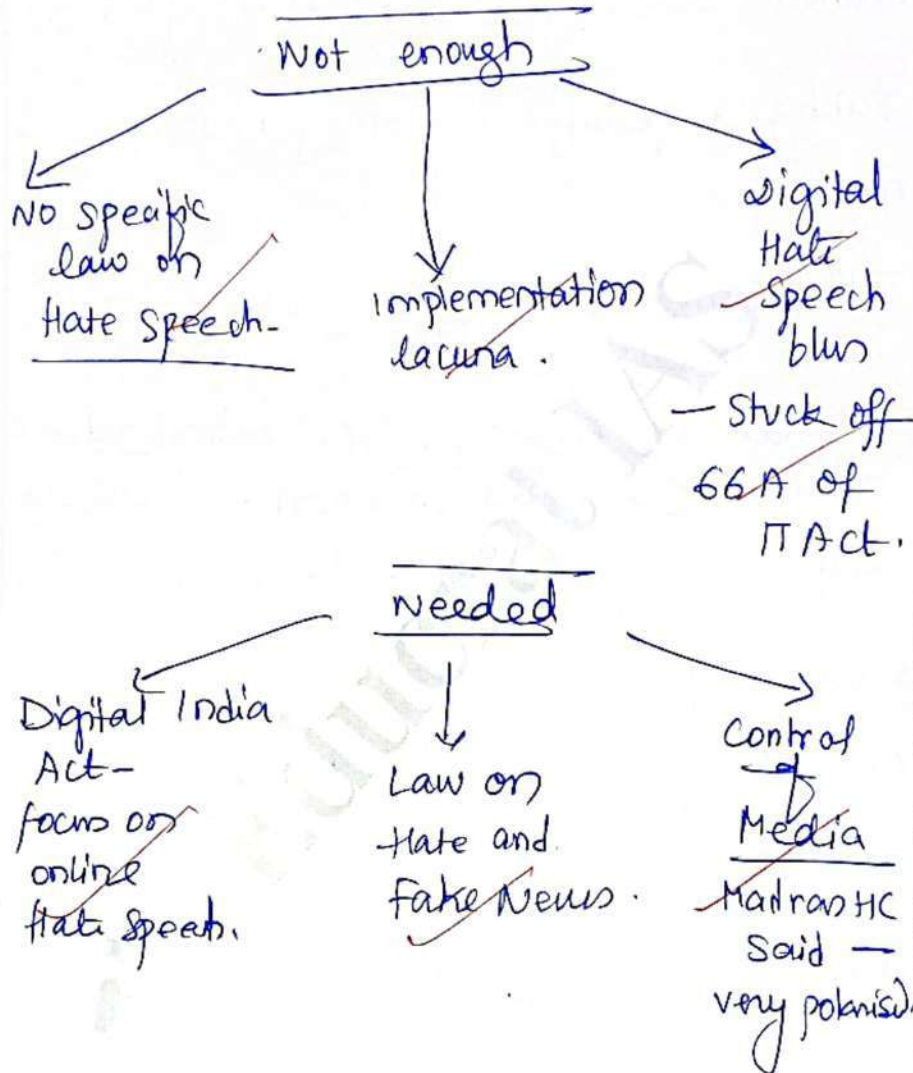 Not enough
No specific
law on
Hate Speech-
Implementation
lacuna.
Digital
Hate
Speech
blurs
- Stuck off
66A of
IT Act.
Needed
Digital India
Act-
focus on
online
Hate Speech.
Law on
Hate and
Fake News.
Control
of
Media
Madras HC
Said -
very polarised.